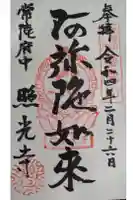 奉拝 令和四年二月二十六日
阿弥陀如来
常陸府中
照光寺